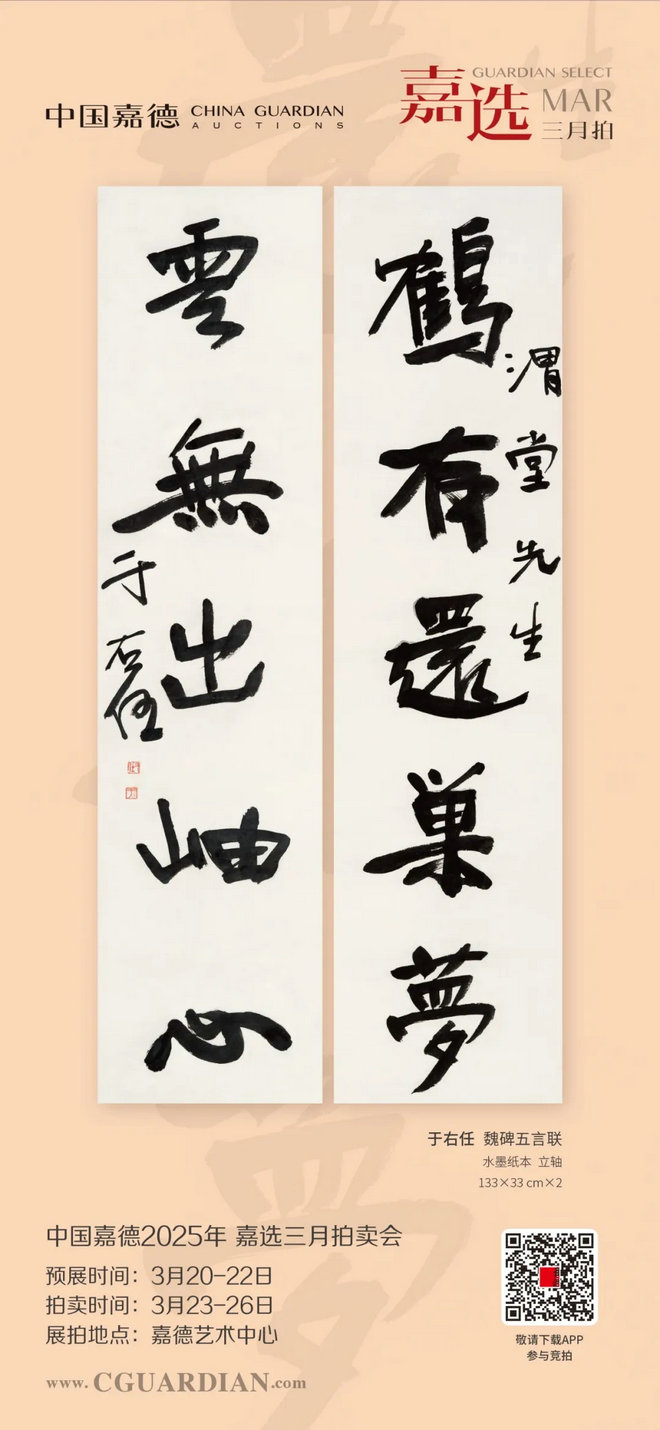 中国嘉德 CHINA GUARDIAN
AUCTIONS
嘉选 GUARDIAN SELECT
MAR
三月拍
鶴有還巢夢
渭堂先生
雲無出岫心
于右任
于右任 魏碑五言联
水墨纸本 立轴
133×33 cm×2
中国嘉德2025年 嘉选三月拍卖会
预展时间：3月20-22日
拍卖时间：3月23-26日
展拍地点：嘉德艺术中心
www.CGUARDIAN.com
敬请下载APP
参与竞拍